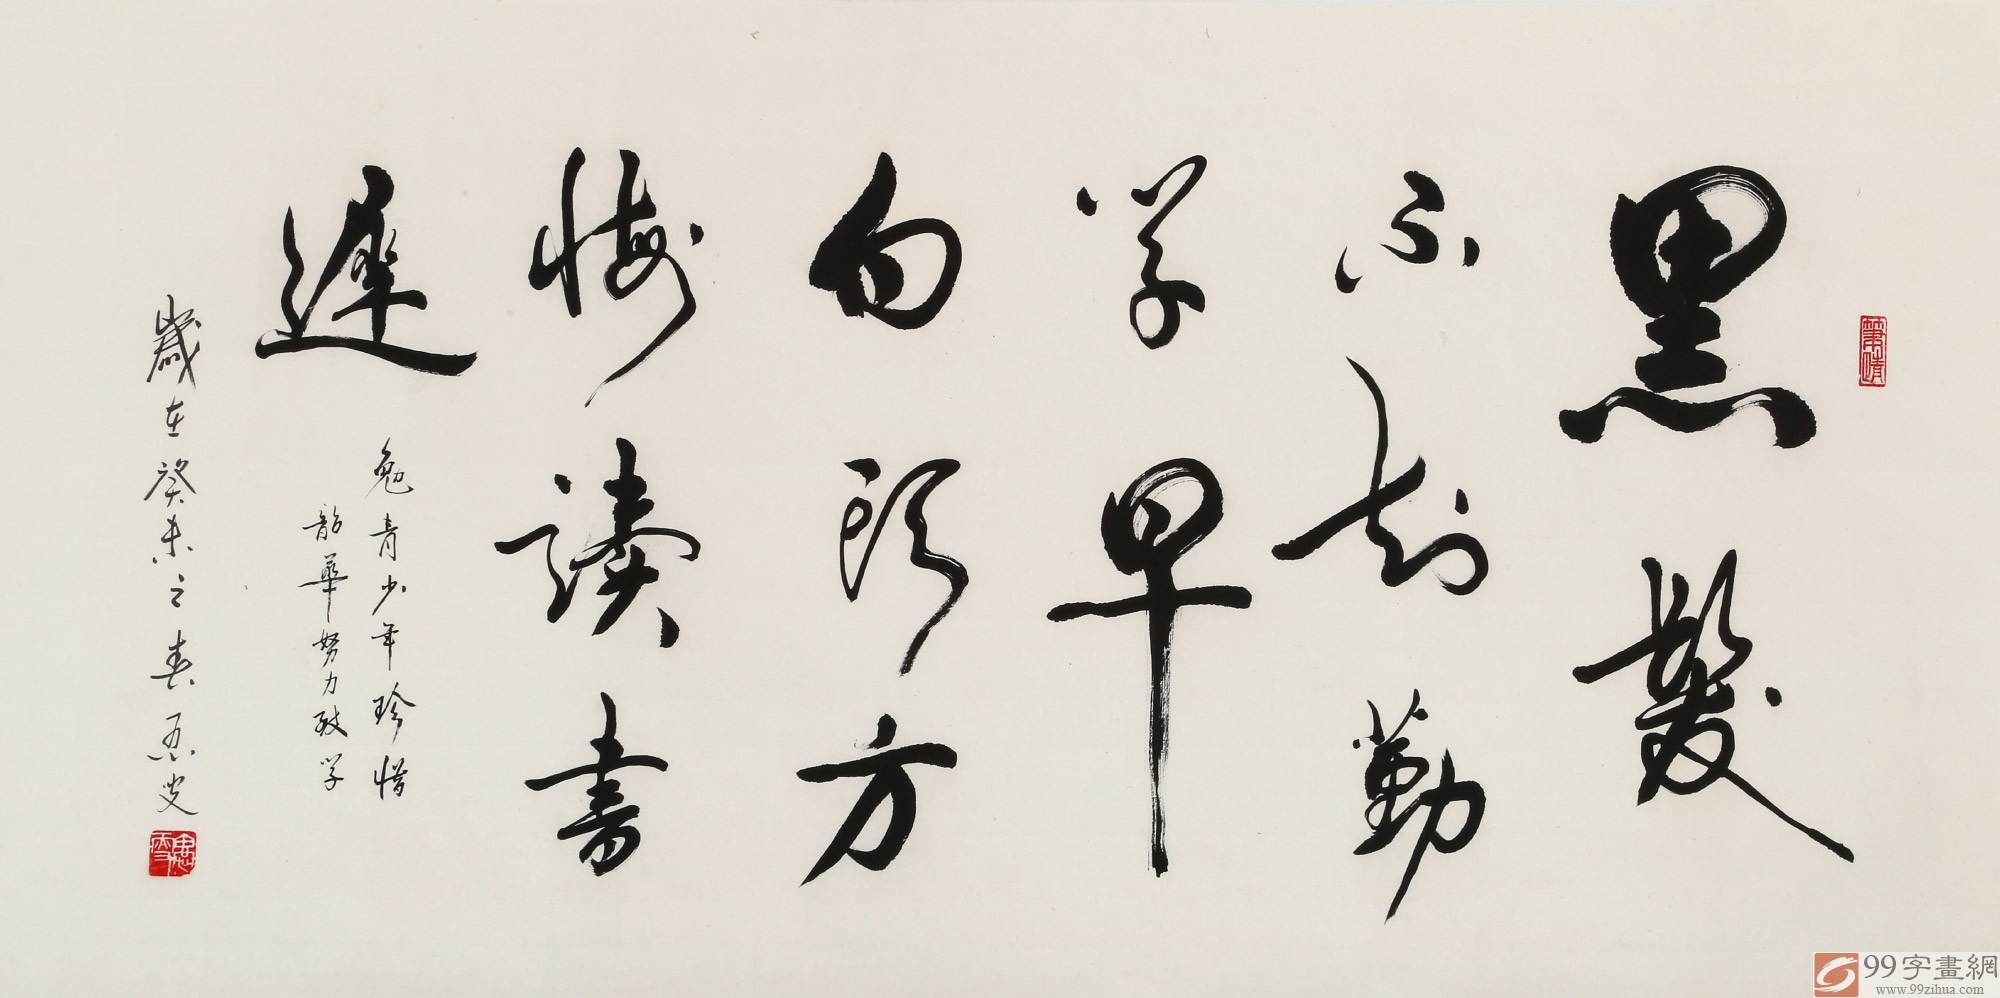 黑髮
不知勤
学早
白頭方
悔讀書
遲
勉青少年珍惜
韶華努力致学
歲在癸未之春
99字畫網
www.99zihua.com